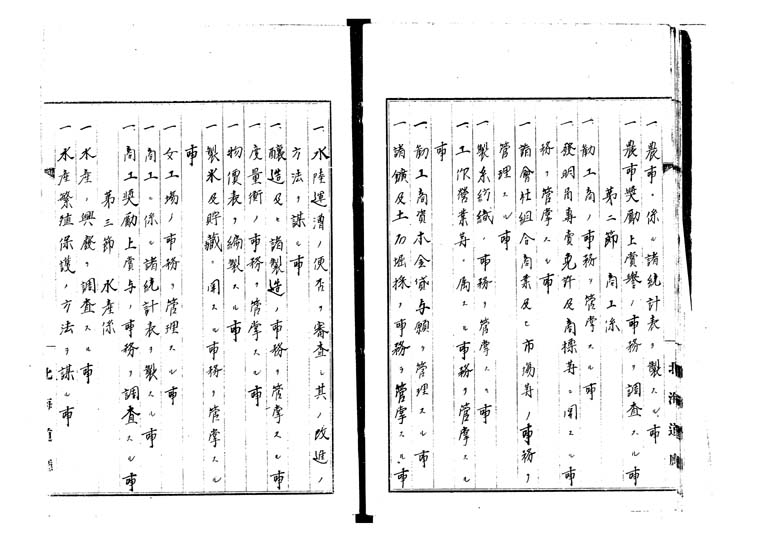 一農事ニ係ル諸統計表ヲ製スル事
一農事奨励上賞与ノ事務ヲ調査スル事
第二節 商工係
一勧工商ノ事務ヲ管掌スル事
一発明品専売免許及商標等ニ関スル事
務ヲ管掌スル事
一諸会社組合商業及ヒ市場等ノ事務ヲ
管理スル事
一製糸紡織ノ事務ヲ管掌スル事
一工作営業等ニ属スル事務ヲ管掌スル
事
一勧工商資本金貸与願ヲ管理スル事
一諸鉱及土石堀採ノ事務ヲ管掌スル事
北海道庁
一水陸運漕ノ便否ヲ審査シ其ノ改進ノ
方法ヲ謀ル事
一醸造及ヒ諸製造ノ事務ヲ管掌スル事
一度量衡ノ事務ヲ管掌スル事
一物価表ヲ編製スル事
一製米及貯蔵ニ関スル事務ヲ管掌スル
事
一女工場ノ事務ヲ管理スル事
一商工ニ係ル諸統計表ヲ製スル事
一商工奨励上賞与ノ事務ヲ調査スル事
第三節 水産係
一水産ノ興廃ヲ調査スル事
一水産繁殖保護ノ方法ヲ謀ル事
北海道庁